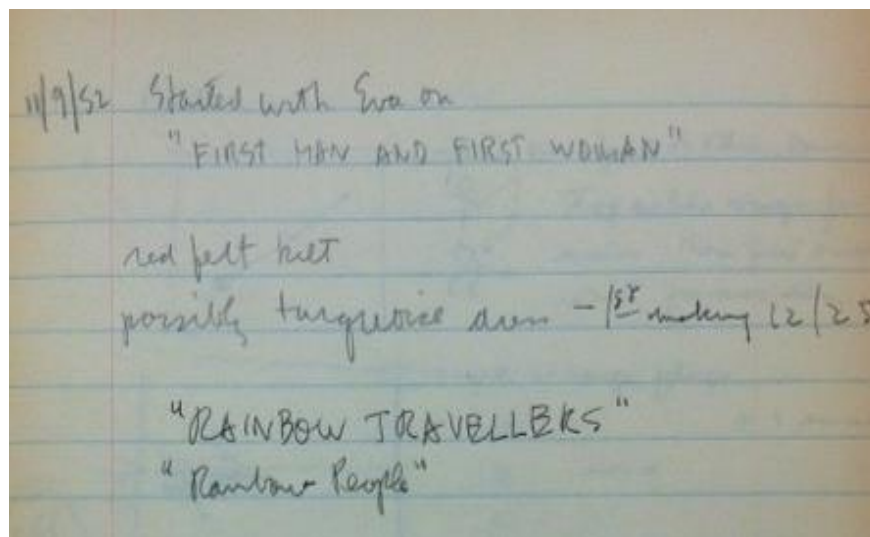 11/9/52 Started with Eva on
"FIRST MAN AND FIRST WOMAN"
red felt kilt
possibly turquoise dress - 1st making 12/25
"RAINBOW TRAVELLERS"
"Rainbow People"